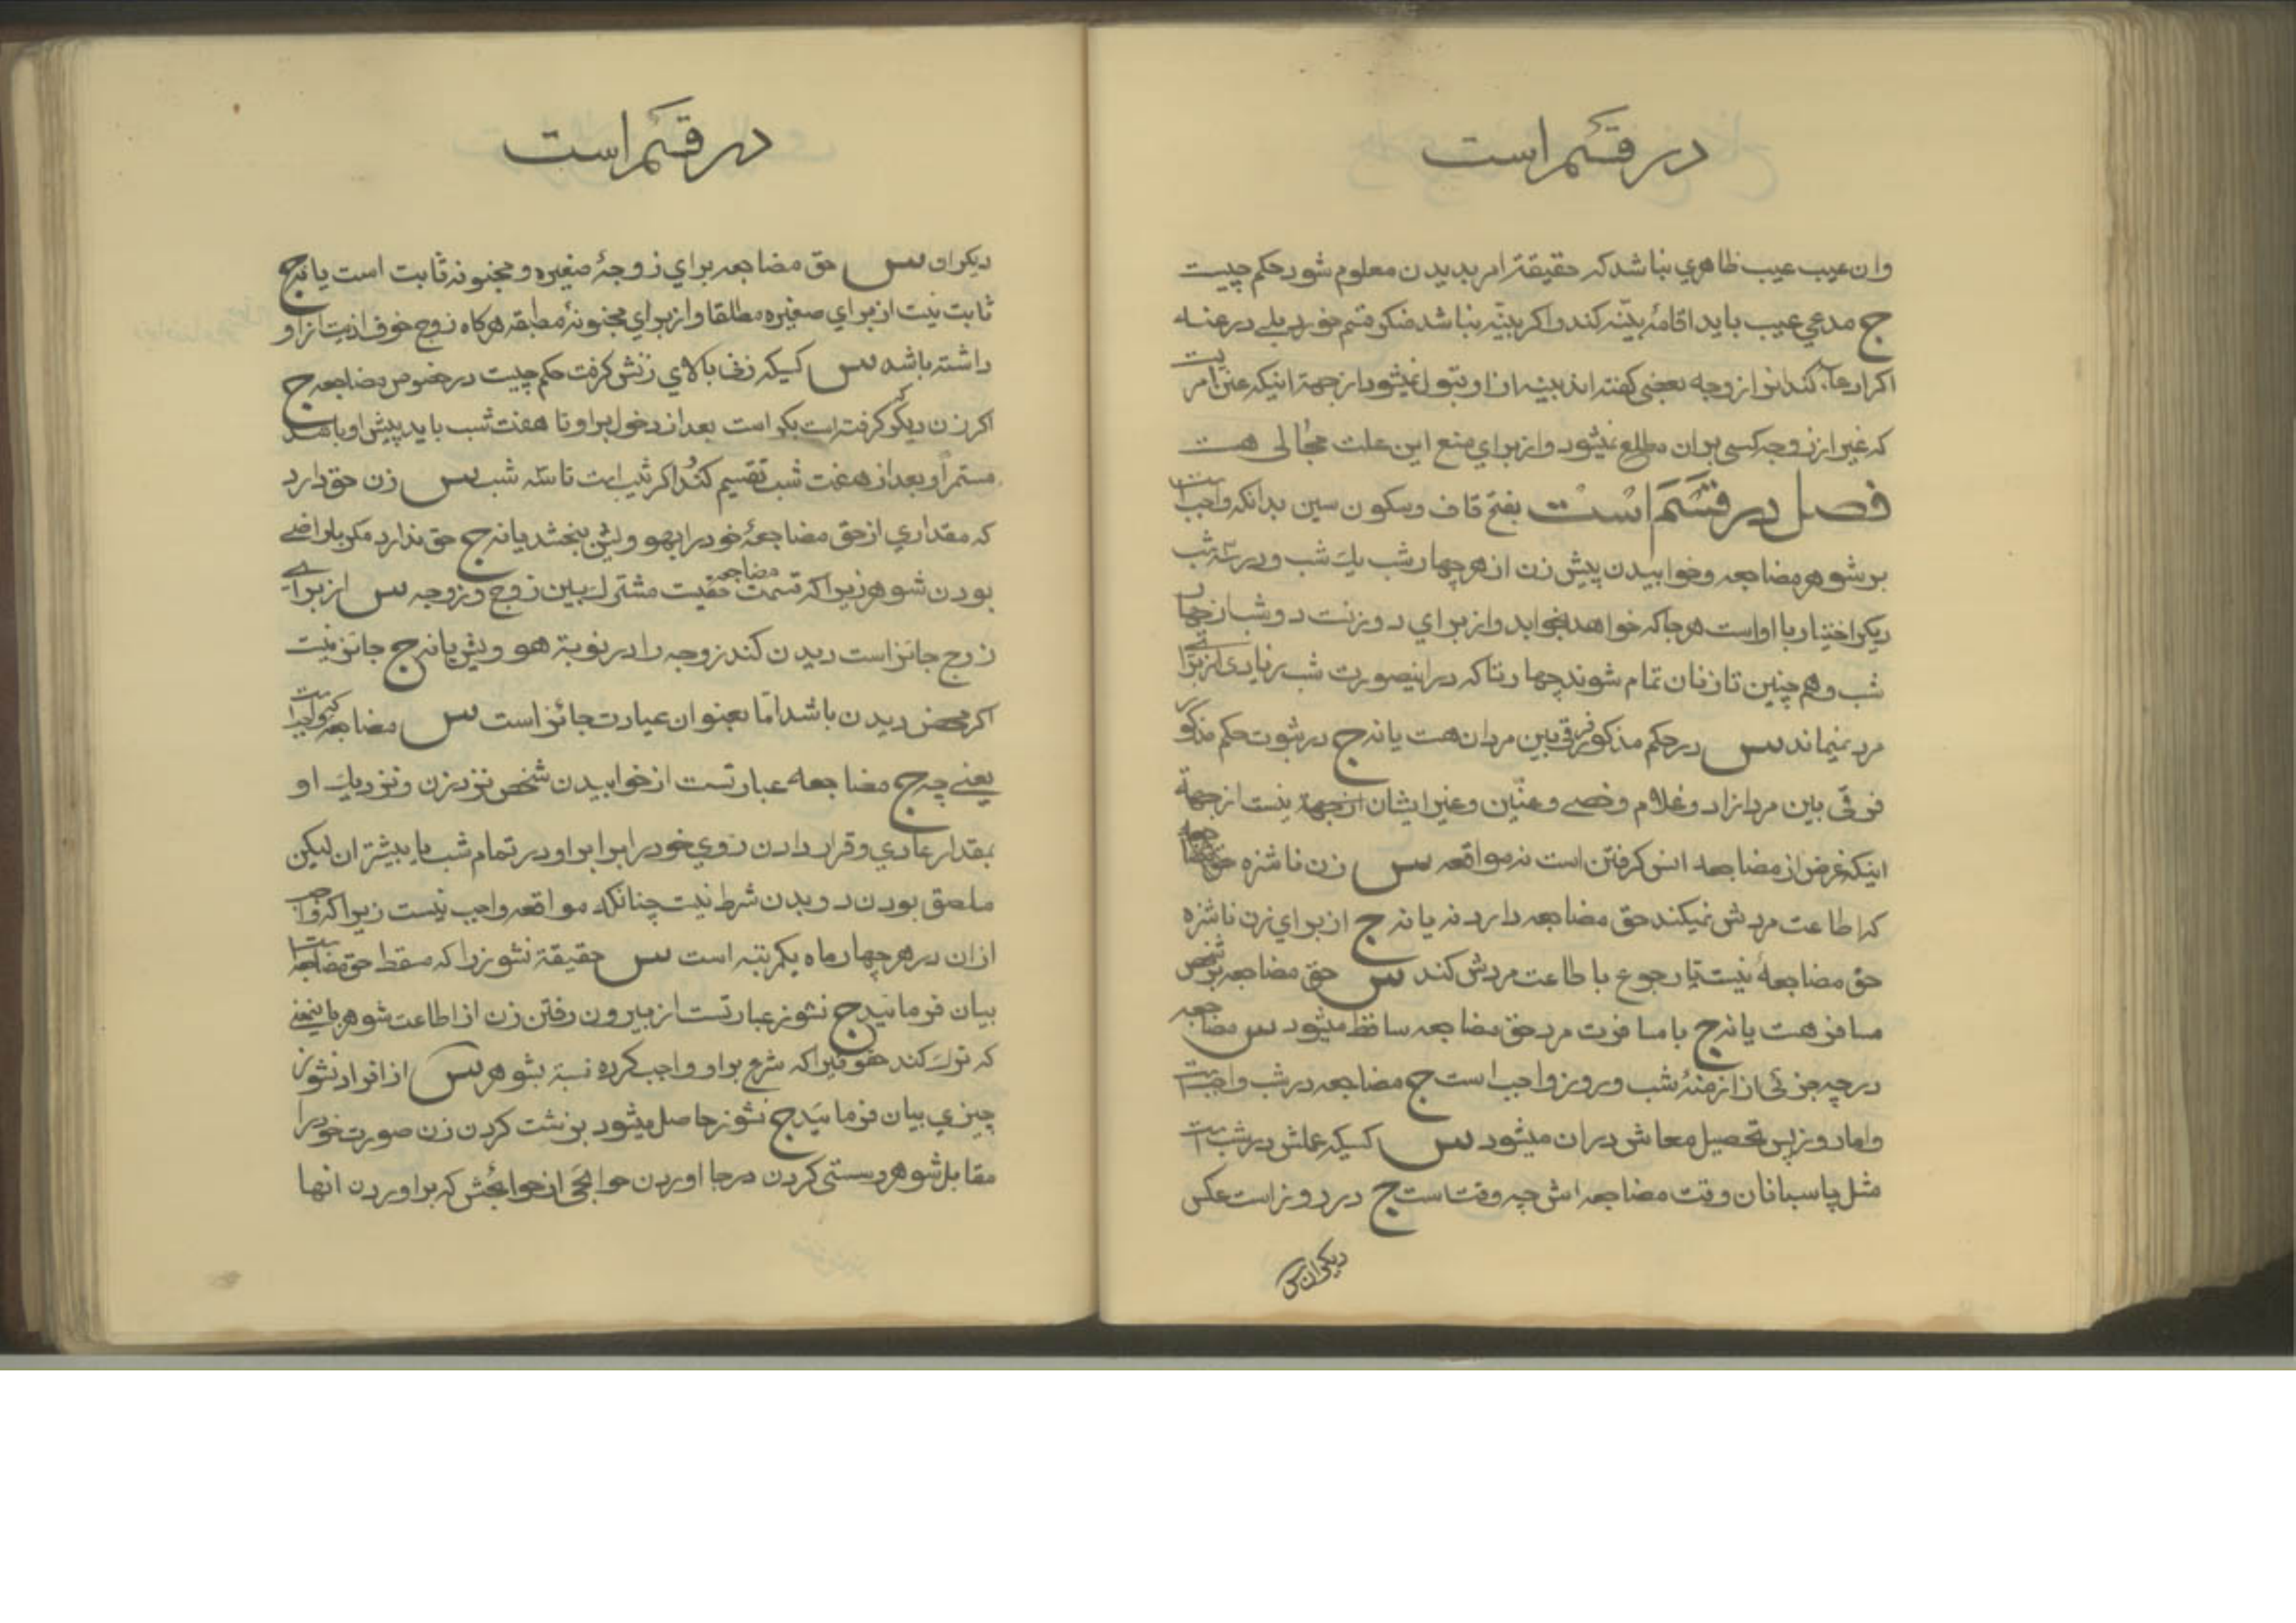 در قسم است
وان عیب عیب ظاهري نباشد که حقیقة امر بدیدن معلوم شود حکم چیست
ج مدعي عیب باید اقامۀ بیّنه کند و اکر بیّنه نباشد منکر قسم خورد بلے در عنه
اکر ادعا کند زن از وجه بعضی کفته اند بینه از او قبول نمیشود از جهة اینکه عنن امریت
که غیر از زوجه کسی بر ان مطلع نمیشود و از برای منع این علت مجالی هست
فصل در قَسَم است بفتح قاف و سکون سین بدانکه واجبست
بر شوهر مضاجعه و خوابیدن پیش زن از هر چهار شب یك شب و در سه شب
دیکر اختیار با اوست هر جا که خواهد بخوابد و از برای دو زنست دو شب از چهار
شب و هم چنین تا زنان تمام شوند چهار تا که در اینصورت شب زیادی از برای
مرد نمیماند س در حکم مذکور فرقی بین مردان هست یا نه ج در ثبوت حکم مذکور
فرقی بین مرد ازاد و غلام و خصے و عنّین و غیر ایشان از جهة نیست از جهة
اینکه غرض از مضاجعه انس کرفتن است نه مواقعه س زن ناشزه
که اطاعت مردش نمیکند حق مضاجعه دارد نه یا نه ج از برای زن ناشزه
حق مضاجعۀ نیست تا رجوع باطاعت مردش کند س حق مضاجعه بر شخص
مسافر هست یا نه ج با مسافرت مرد حق مضاجعه ساقط میشود س مضاجعه
در چه جزئی از ازمنۀ شب و روز واجب است ج مضاجعه در شب واجبست
و اما روز پس تحصیل معاش در ان میشود س کسیکه عملش در شبست
مثل پاسبانان وقت مضاجعه اش چه وقت است ج در روز است عکس
دیکران س
در قسم است
دیکران س حق مضاجعه برای زوجۀ صغیره و مجنونه ثابت است یا نه ج
ثابت نیست از برای صغیره مطلقا و از برای مجنونۀ مطبقه هرکاه زوج خوف اذیت از او
داشته باشد س کسیکه زنی بالای زنش کرفت حکم چیست در خصوص مضاجعه ج
اکر زن دیکر که کرفته است بکر است بعد از دخول بر او تا هفت شب باید پیش او باشد
مستمراً و بعد از هفت شب تقسیم کند و اکر ثیب است تا سه شب س زن حق دارد
که مقداري از حق مضاجعۀ خود را بهوویش بخشد یا نه ج حق ندارد مکر با راضے
بودن شوهر زیرا که قسمت مضاجعه حقیست مشترك بین زوج و زوجه س از برای
زوج جائز است دیدن کند زوجه را در نوبة هوویش یا نه ج جائز نیست
اکر محض دیدن باشد امّا بعنوان عیادت جائز است س مضاجعه که واجبست
یعنے چه ج مضاجعه عبارتست از خوابیدن شخص نزد زن و نزدیك او
بمقدار عادي و قرار دادن روي خود را برابر او در تمام شب یا بیشتر ان لیکن
ملصق بودن دو بدن شرط نیست چنانکه مواقعه واجب نیست زیرا که واجب
از ان در هر چهار ماه یکمرتبه است س حقیقة نشوز را که مسقط حق مضاجعه است
بیان فرمائید ج نشوز عبارتست از بیرون رفتن زن از اطاعت شوهر باینمعنے
که ترك کند حقوقیرا که شرع بر او واجب کرده نسبة بشوهر س از افراد نشوز
چیزي بیان فرمائید ج نشوز حاصل میشود بزشت کردن زن صورت خود را
مقابل شوهر و سستی کردن در جا اوردن حوائجی از حوائجش که بر اوردن انها